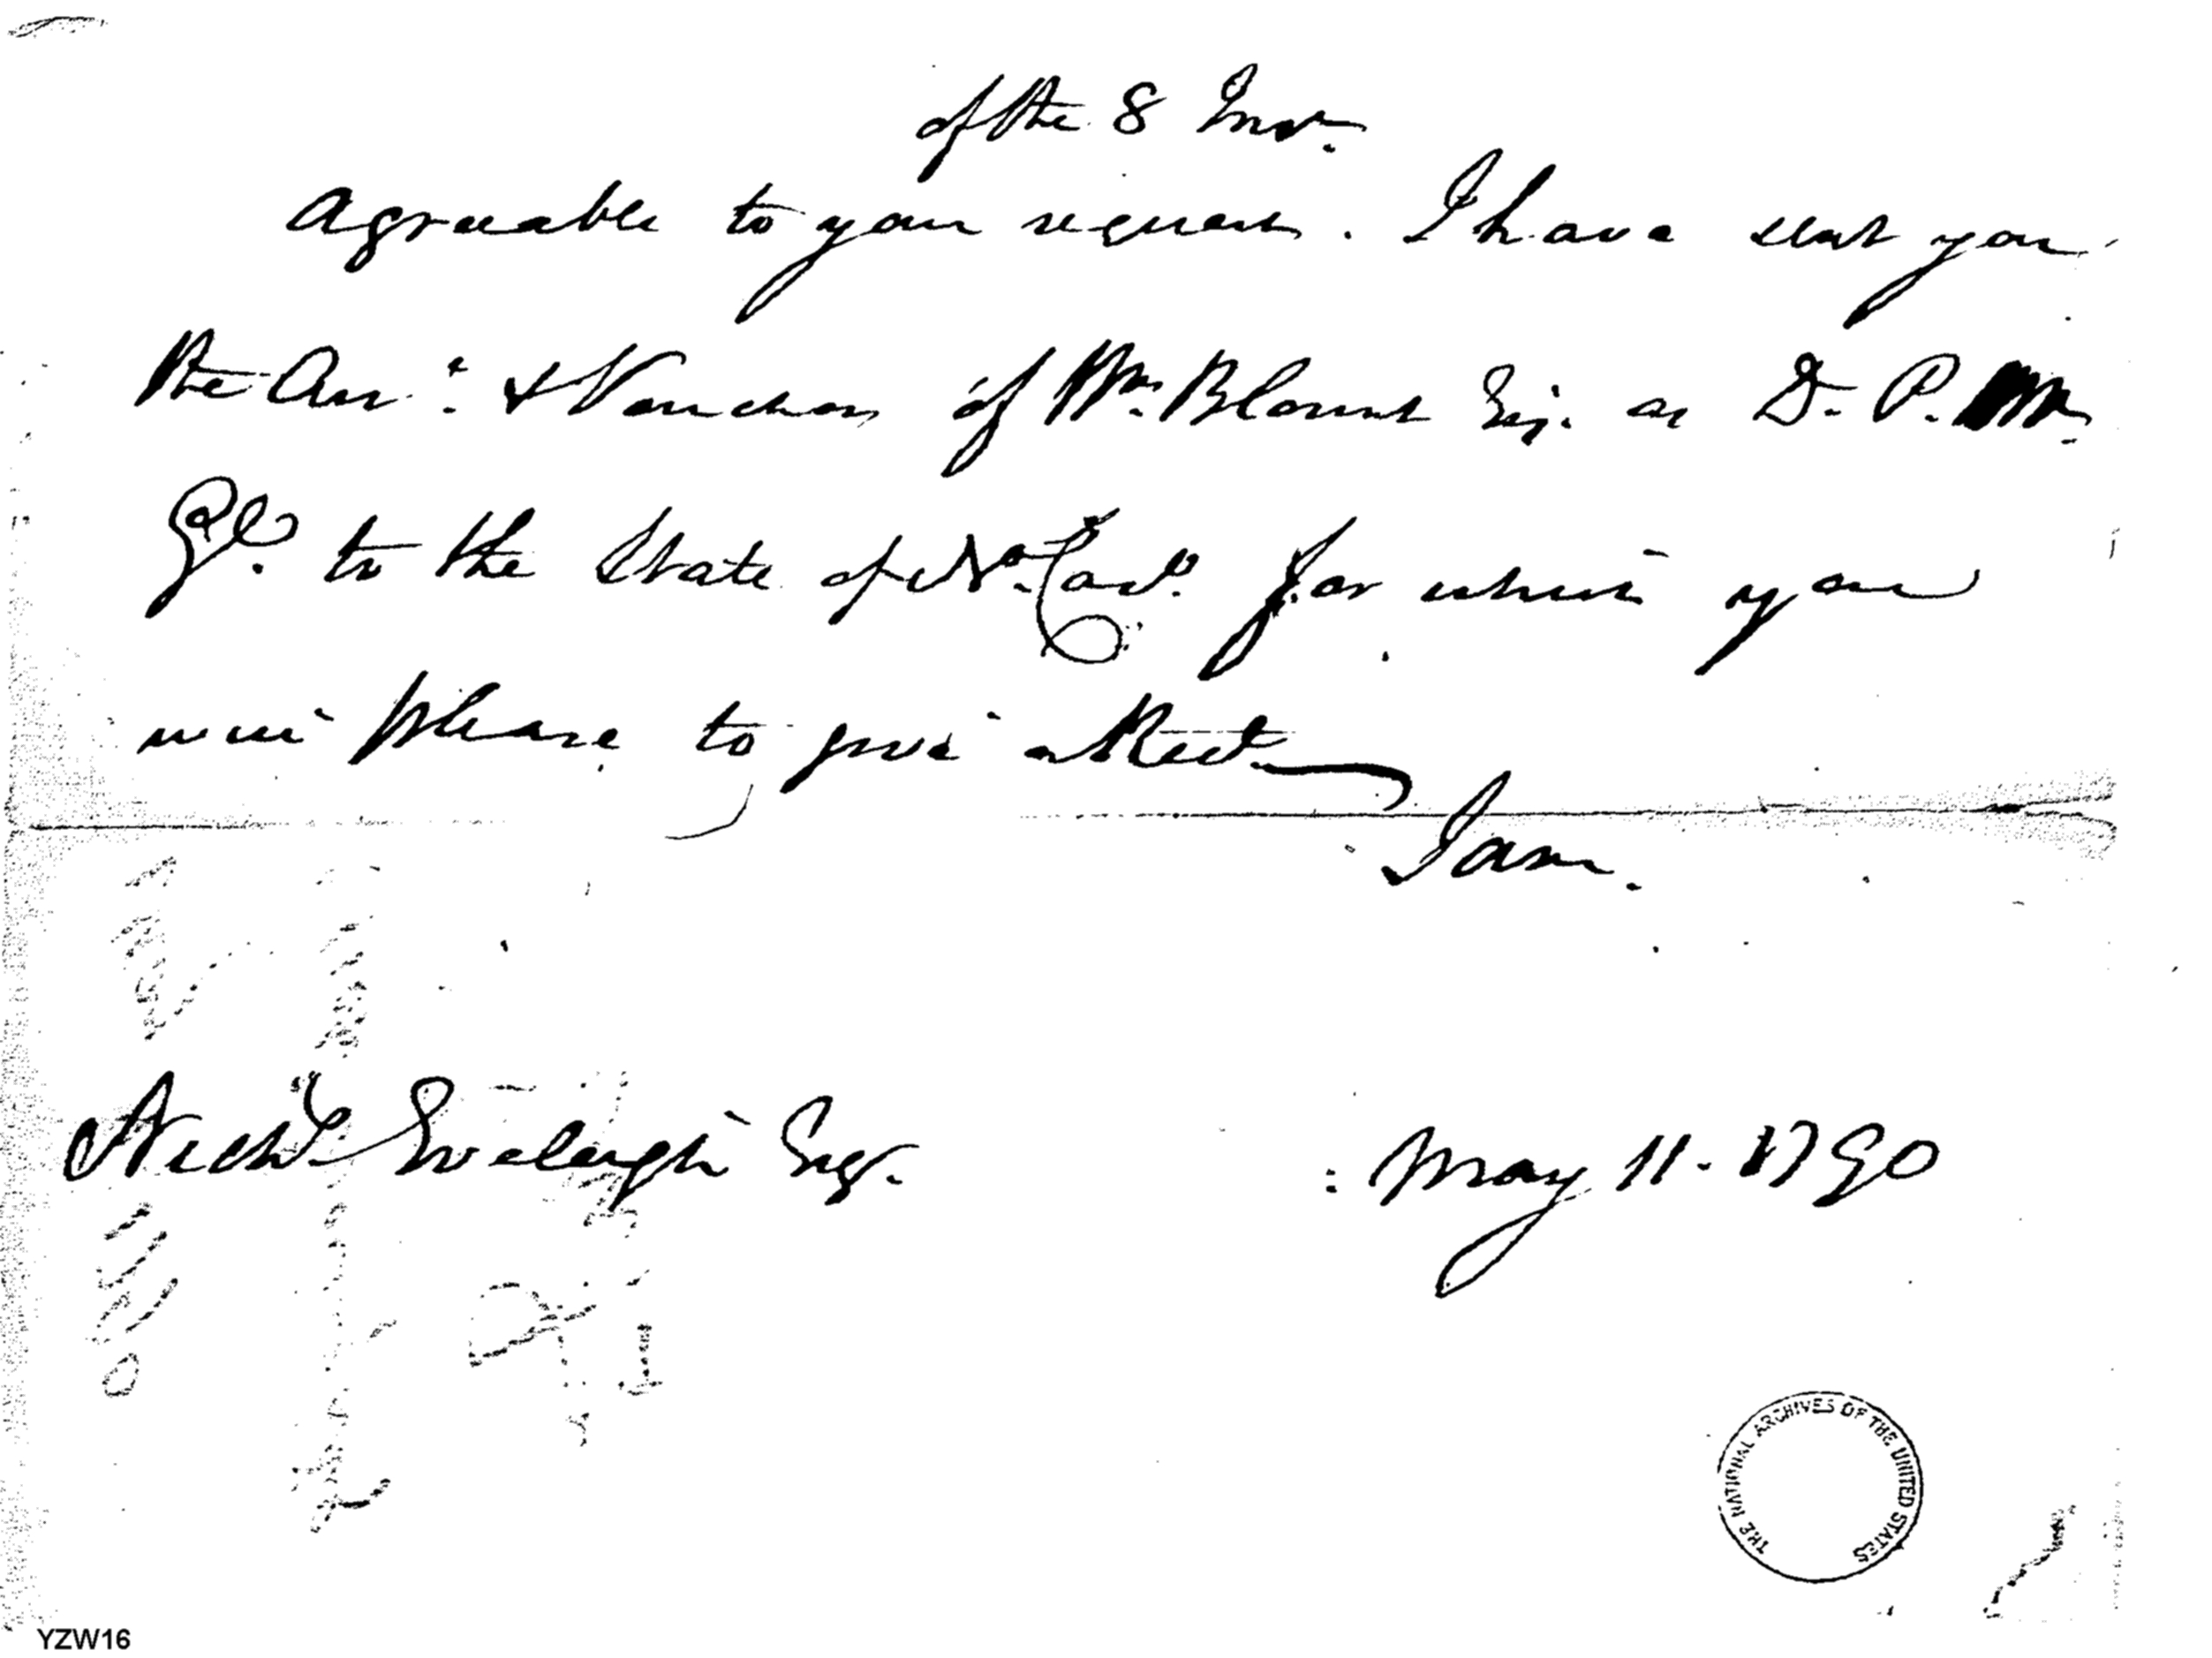 of the 8 Inst.
Agreeable to your request. I have sent you
the Acc.ts & Vouchers of Wm. Blount Esq. as D. P. M.
Gl. to the State of No. Caro. for which you
will please to give a Rect.
I am.
Nichs. Eveleigh Esq. : May 11. 1790
THE NATIONAL ARCHIVES OF THE UNITED STATES
YZW16